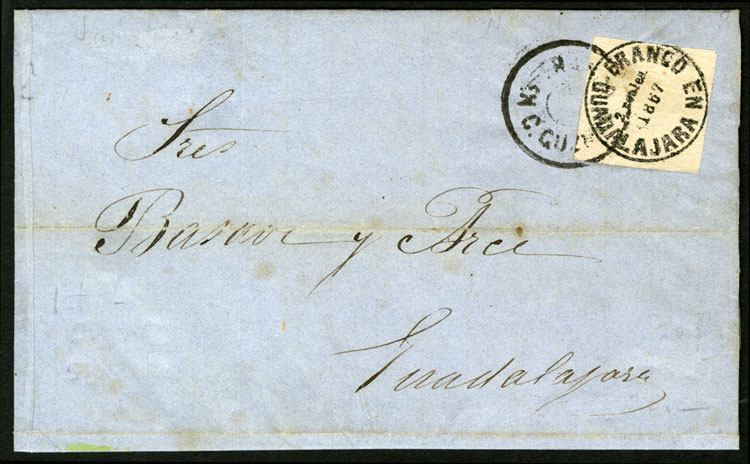 FRANCO EN GUADALAJARA
2 reales
1867
EN C. GUZ
Sres
Basave y Arce
Guadalajara